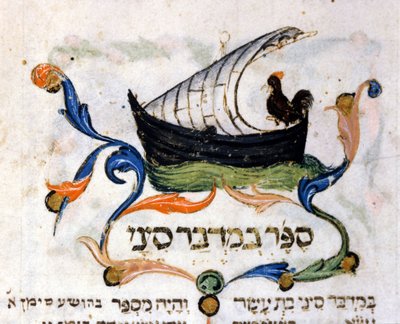 ספר במדבר סיני
במדבר סיני בת עשר והיה מספר בהושע סימן א